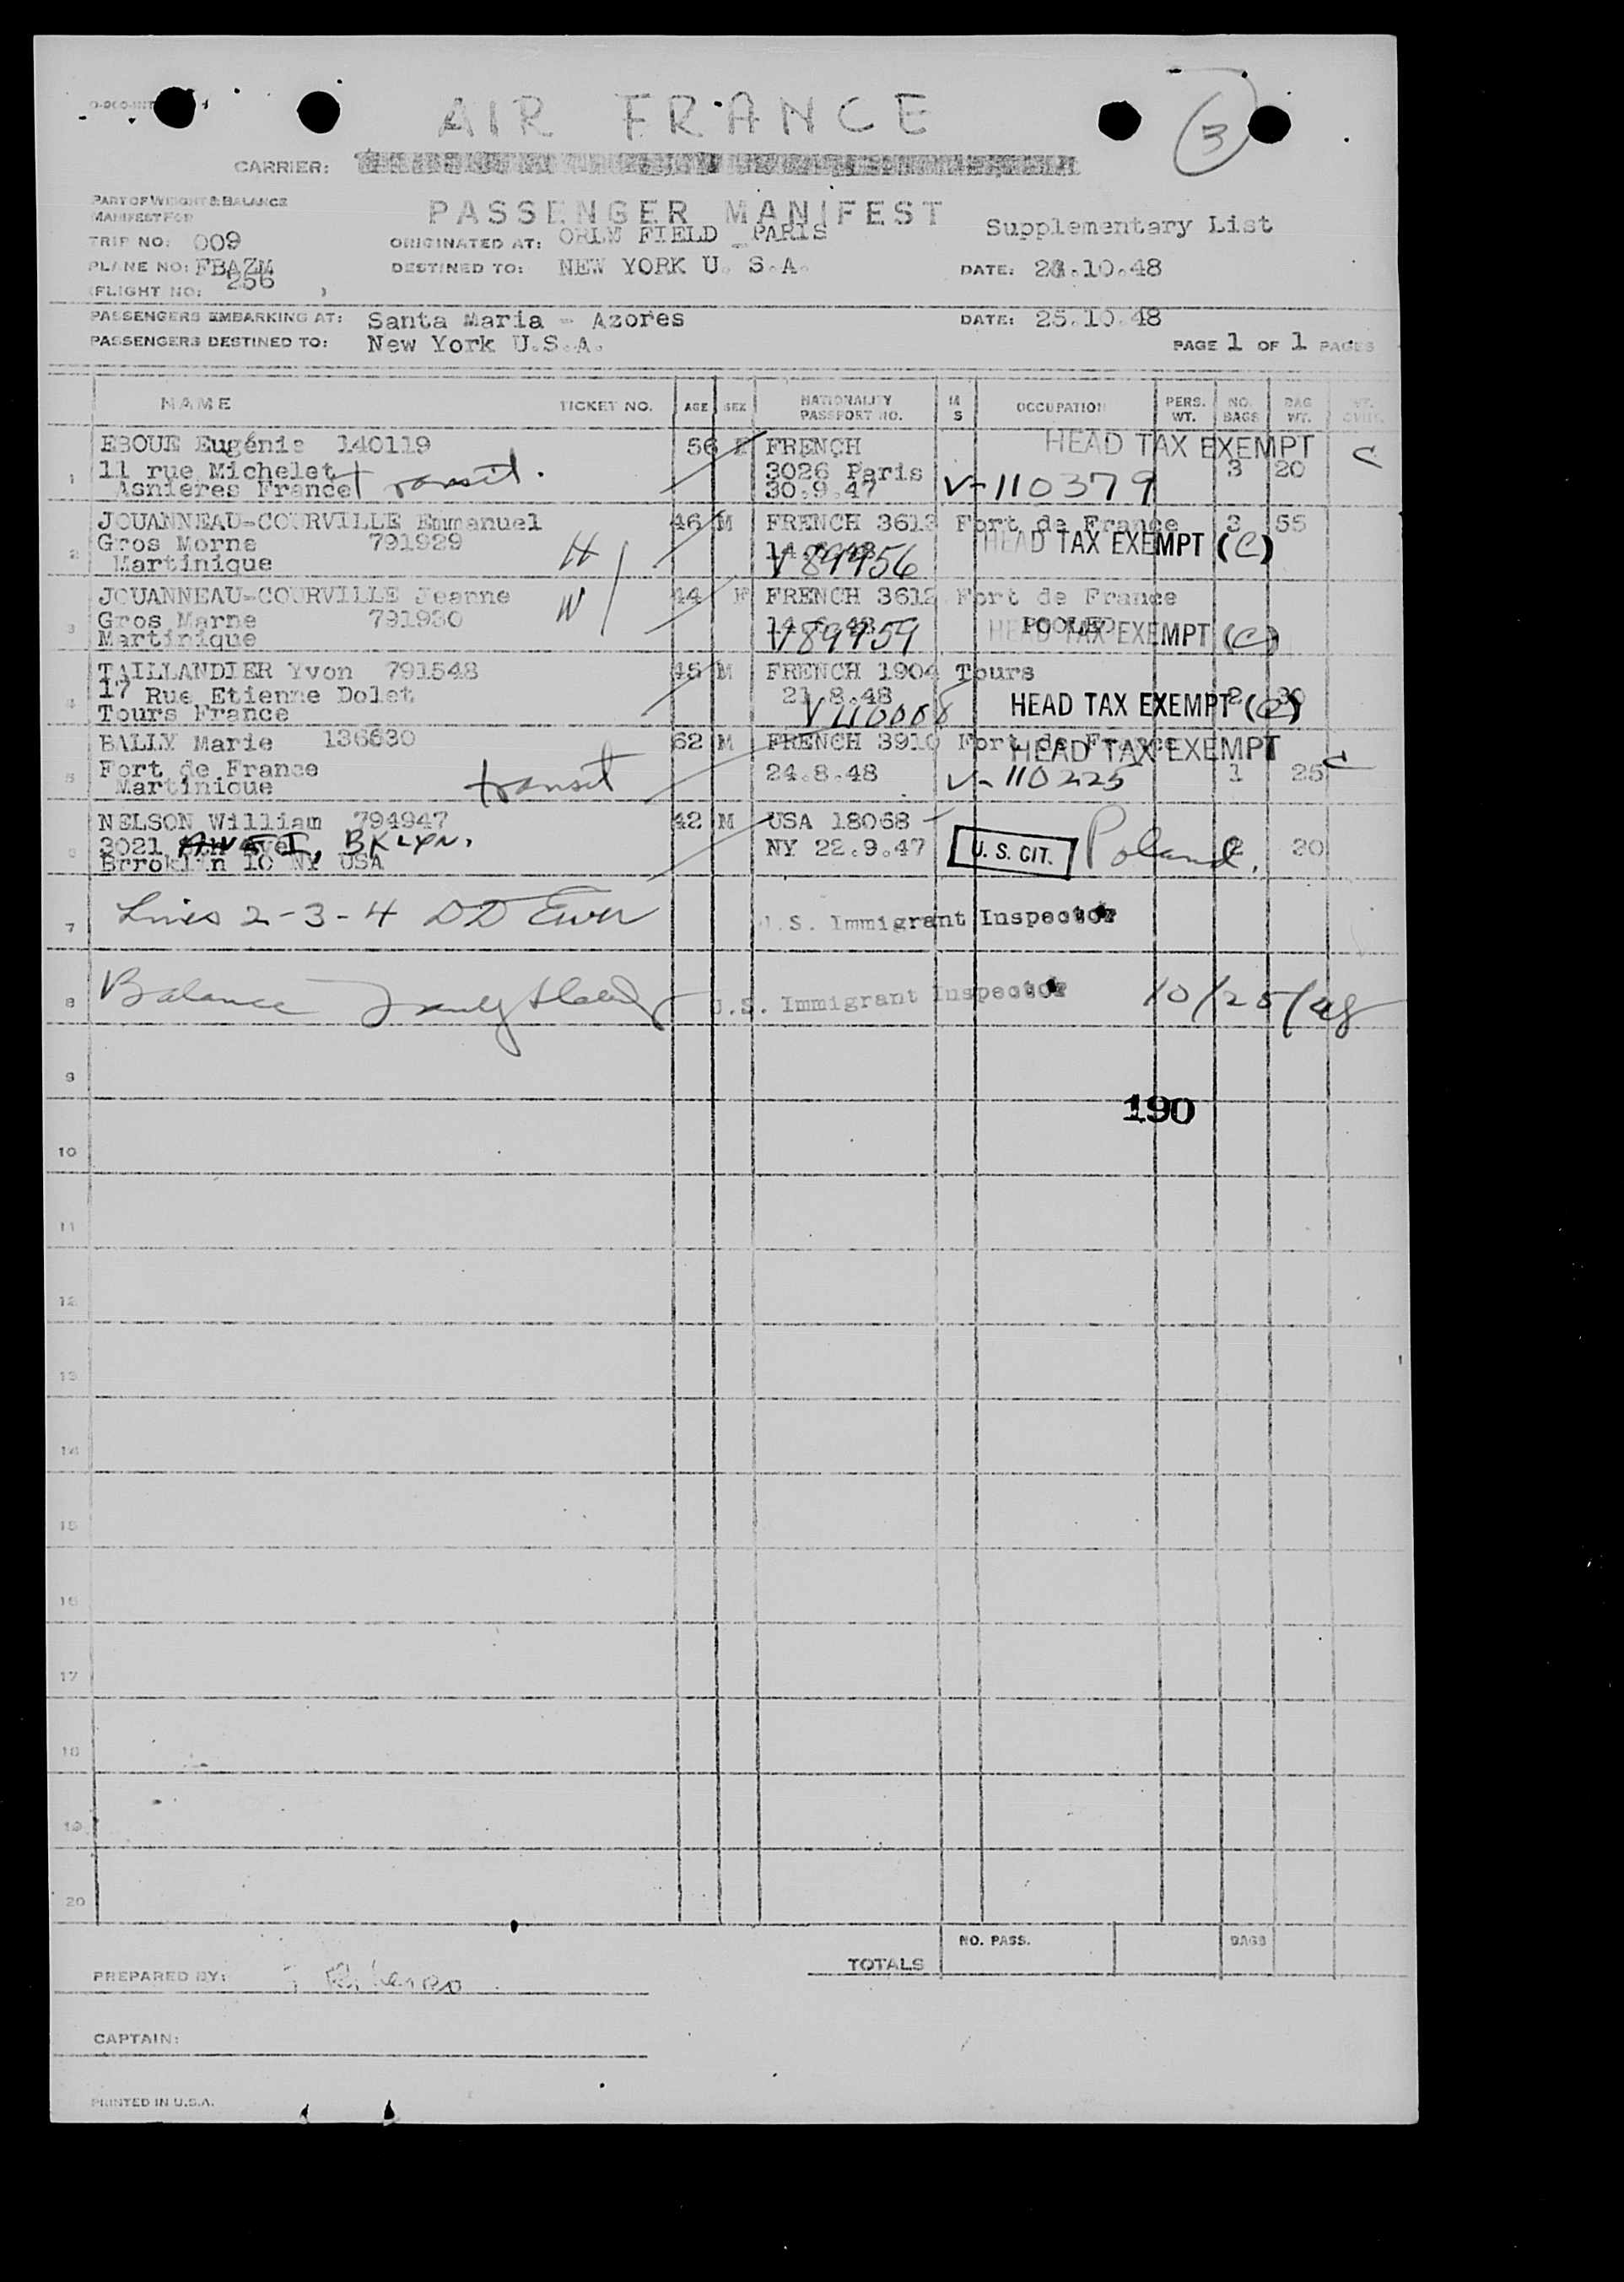 AIR FRANCE
3
CARRIER:
PART OF WEIGHT & BALANCE
MANIFEST FOR
PASSENGER MANIFEST
Supplementary List
TRIP NO: 009
ORIGINATED AT: ORLY FIELD _ PARIS
PLANE NO: FBAZM
DESTINED TO: NEW YORK U. S.A.
DATE: .10.48
(FLIGHT NO: 256 )
PASSENGERS EMBARKING AT: Santa Maria - Azores
DATE: 25.10.48
PASSENGERS DESTINED TO: New York U.S.A.
PAGE 1 OF 1 PAGES
NAME TICKET NO. AGE SEX NATIONALITY PASSPORT NO. M S OCCUPATION PERS. WT. NO. BAGS BAG WT.
EBOUE Eugénie 140119 56 F FRENCH HEAD TAX EXEMPT C
1 11 rue Michelet transit. 3026 Paris V-110379 3 20
Asnieres France 30.9.47
JOUANNEAU-COURVILLE Emmanuel 46 M FRENCH 3613 Fort de France 3 55
2 Gros Morne 791929 H HEAD TAX EXEMPT (C)
Martinique V 89956
JOUANNEAU-COURVILLE Jeanne 44 F FRENCH 3612 Fort de France
3 Gros Marne 791930 W POOLED
Martinique V 89959 HEAD TAX EXEMPT (C)
TAILLANDIER Yvon 791548 45 M FRENCH 1904 Tours
4 17 Rue Etienne Dolet 21.8.48 HEAD TAX EXEMPT (C) 2 30
Tours France V 110008
BALLY Marie 136630 62 M FRENCH 3910 Fort de France
HEAD TAX EXEMPT C
5 Fort de France transit 24.8.48 V-110225 1 25
Martinique
NELSON William 794947 42 M USA 18068
6 3021 AVE I, BKLYN. NY 22.9.47 U. S. CIT. Poland, 2 20
Brroklin 10 NY USA
7 Lines 2-3-4 DD Ewer U.S. Immigrant Inspector
8 Balance U.S. Immigrant Inspector 10/25/48
9
190
10
11
12
13
14
15
16
17
18
19
20
NO. PASS. BAGS
TOTALS
PREPARED BY:
CAPTAIN:
PRINTED IN U.S.A.